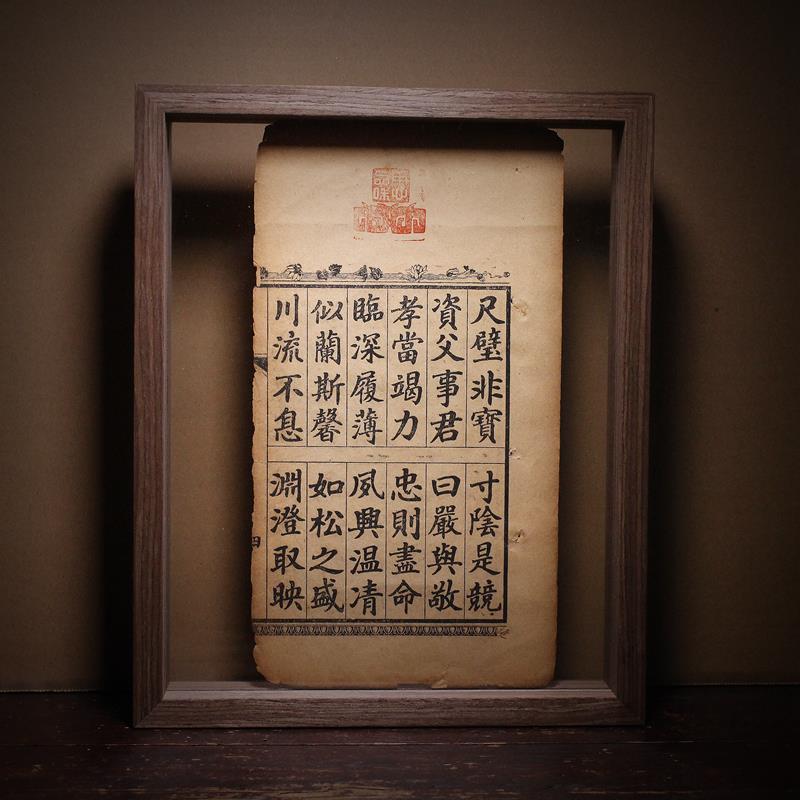 尺璧非寶 寸陰是競
資父事君 曰嚴與敬
孝當竭力 忠則盡命
臨深履薄 夙興温凊
似蘭斯馨 如松之盛
川流不息 淵澄取映